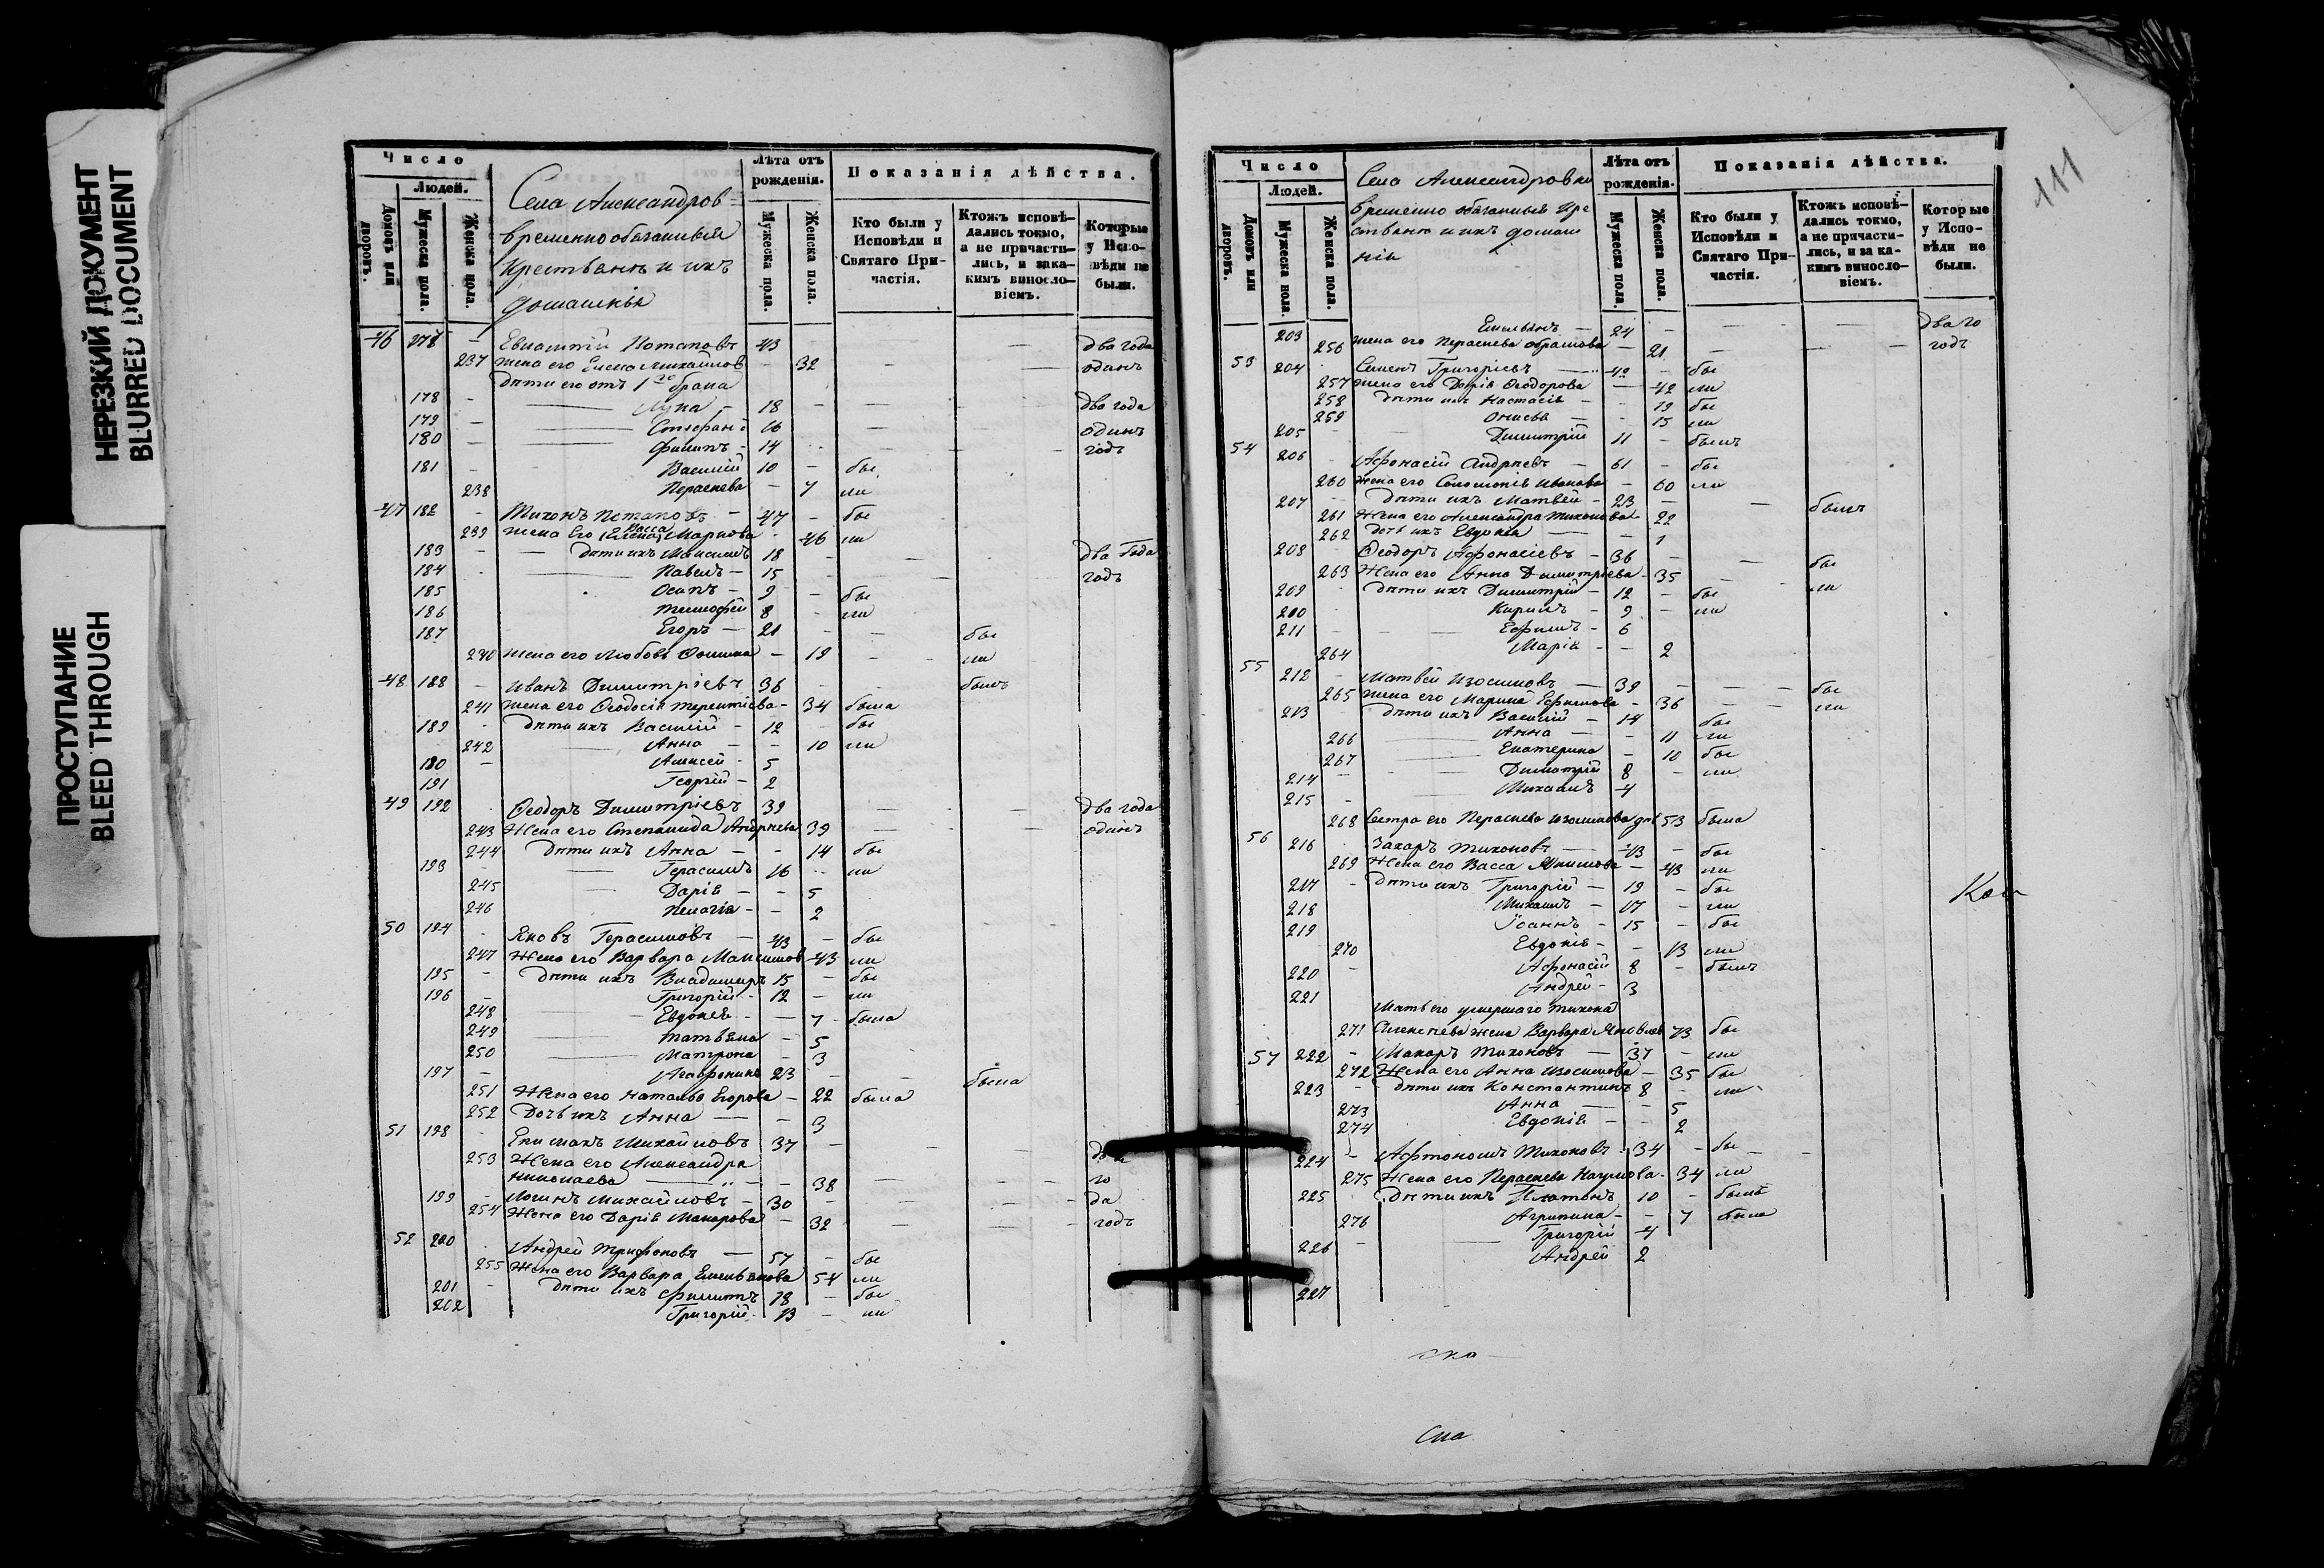 НЕРЕЗКИЙ ДОКУМЕНТ
BLURRED DOCUMENT
ПРОСТУПАНИЕ
BLEED THROUGH
Число
Людей.
Домовъ или дворовъ.
Мужеска пола.
Женска пола.
Села Александров=
временнообязанныя
Крестьянъ и ихъ
домашнія
Лѣта отъ рожденія.
Мужеска пола.
Женска пола.
Показанія дѣйства.
Кто были у Исповѣди и Святаго Причастія.
Ктожъ исповѣдались токмо, а не причастились, и закакимъ винословіемъ.
Которые у Исповѣди не были.
46 Потаповъ 43 два года
237 жена его Елена Михайлов 32 одинъ
дѣти его отъ 1го брака
178 Лука 18 два года
179 Стефан 16 одинъ
180 Филипъ 14 годъ
181 Василій 10 бы
238 Параскева 7 ли
47 182 Тихонъ Потаповъ 47 бы
239 жена его Васса (Елена) Маркова 46 ли
183 дѣти ихъ Максимъ 18 два Года
184 Павелъ 15 годъ
185 Осипъ 9 бы
186 Тимофей 8 ли
187 Егоръ 21 бы
240 жена его Любовь Фомина 19 ли
48 188 Иванъ Димитріевъ 36 былъ
241 жена его Ѳеодосія Терентіева 34 была
189 дѣти ихъ Василій 12 бы
242 Анна 10 ли
190 Алексей 5
191 Георгій 2
49 192 Ѳеодоръ Димитріевъ 39 два года
243 Жена его Степанида Андреева 39 одинъ
244 дѣти ихъ Анна 14 бы
193 Герасимъ 16 ли
245 Дарія 5
246 Пелагія 2
50 194 Яковъ Герасимовъ 43 бы
247 Жена его Варвара Максимов 43 ли
195 дѣти ихъ Владимиръ 15 бы
196 Григорій 12 ли
248 Евдокія 7 была
249 Татьяна 5
250 Матрона 3
197 Агафоникъ 23 была
251 Жена его Наталья Егорова 22 была
252 Дочь ихъ Анна 3
51 198 Епимахъ Михайловъ 37
253 Жена его Александра
Николаева 38 го
199 Логинъ Михайловъ 30 да
254 Жена его Дарія Макарова 32 годъ
52 200 Андрей Трифоновъ 57 бы
255 Жена его Варвара Емельянова 54 ли
201 дѣти ихъ Филиппъ 18 бы
202 Григорій 13 ли
111
Число
Людей.
Домовъ или дворовъ.
Мужеска пола.
Женска пола.
Села Александровки
временно обязанныя Кре
стьянъ и ихъ домаш
нія
Лѣта отъ рожденія.
Мужеска пола.
Женска пола.
Показанія дѣйства.
Кто были у Исповѣди и Святаго Причастія.
Ктожъ исповѣдались токмо, а не причастились, и за какимъ винословіемъ.
Которые у Исповѣди не были.
203 Емельянъ 24 два го
256 жена его Параскева Абрамова 21 годъ
53 204 Семенъ Григорьевъ 42 бы
257 жена его Дарія Ѳеодорова 42 ли
258 дѣти ихъ Настасія 19 бы
259 Онисья 15 ли
205 Димитрій 11 былъ
54 206 Афонасій Андреевъ 61 бы
260 Жена его Соломонія Иванова 60 ли
207 дѣти ихъ Матвей 23 былъ
261 Жена его Александра Тихонова 22
262 дочь ихъ Евдокія 1
208 Ѳеодоръ Афонасіевъ 36 бы
263 Жена его Анна Димитріева 35 ли
209 дѣти ихъ Димитрій 12 бы
210 Кирилъ 9 ли
211 Ефимъ 6
264 Марія 2
55 212 Матвей Изосимовъ 39 бы
265 жена его Марина Ефимова 36 ли
213 дѣти ихъ Василій 14 бы
266 Анна 11 ли
267 Екатерина 10 бы
214 Димитрій 8 ли
215 Михаилъ 4
268 Сестра его Параскева Изосимова 53 была
56 216 Захаръ Тихоновъ 43 бы
269 Жена его Васса Якимова 43 ли
217 дѣти ихъ Григорій 19 бы
218 Михаилъ 17 ли
219 Іоаннъ 15 бы
270 Евдокія 13 ли
220 Афонасій 8 былъ
221 Андрей 3
Мать его умершаго Тихона
271 Алексеева жена Варвара Яковлев 73 бы
57 222 Макаръ Тихоновъ 37 ли
272 Жена его Анна Изосимова 35 бы
223 дѣти ихъ Константинъ 8 ли
273 Анна 5
274 Евдокія 2
224 Афтономъ Тихоновъ 34 бы
275 Жена его Параскева Наумова 34 ли
225 Дѣти ихъ Платонъ 10 былъ
276 Агрипина 7 была
226 Григорій 4
227 Андрей 2